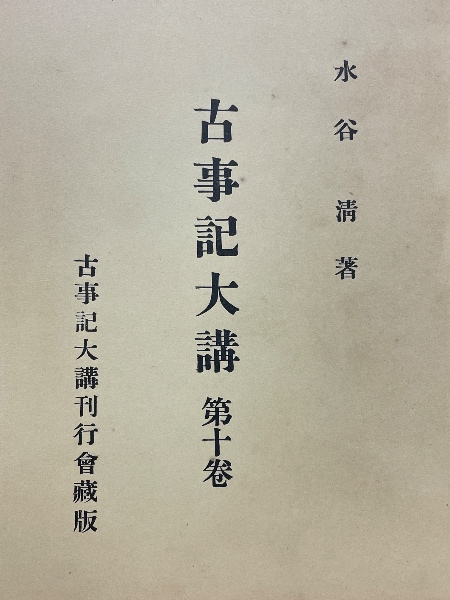 水谷淸著
古事記大講 第十卷
古事記大講刊行會藏版